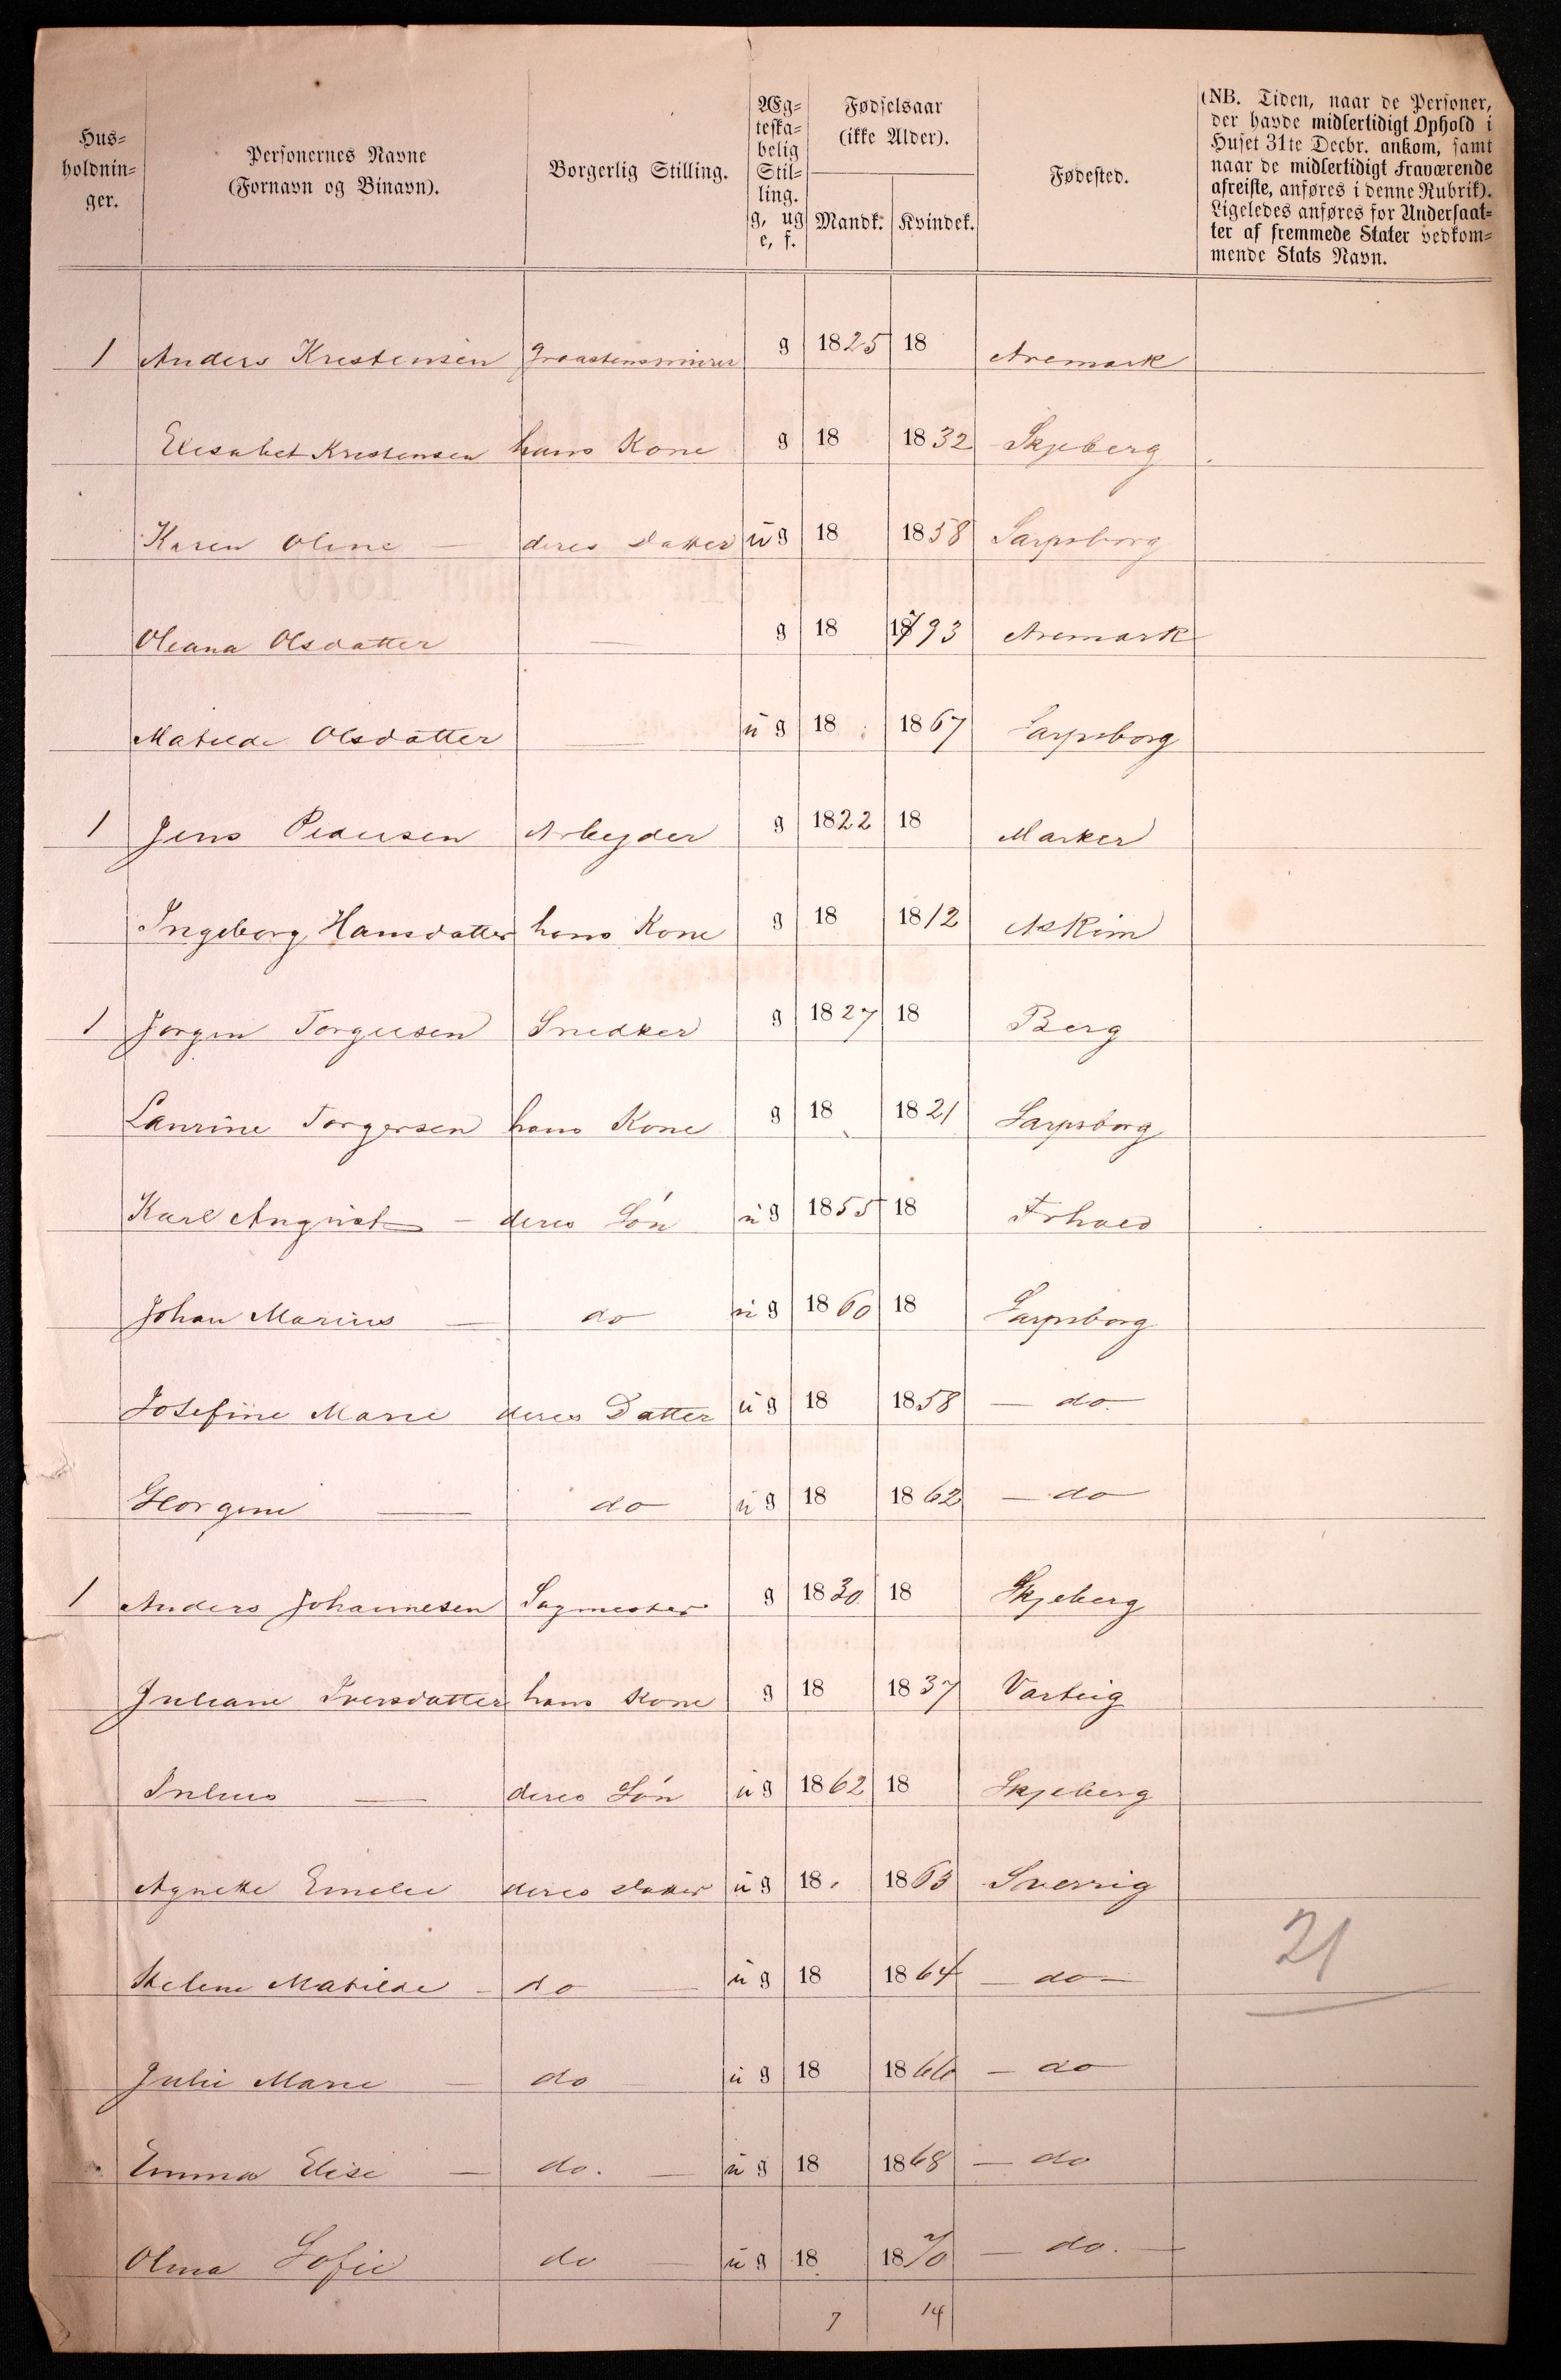 Hus-
holdnin-
ger.
Personernes Navne
(Fornavn og Binavn).
Borgerlig Stilling.
Æg-
teska-
belig
Stil-
ling.
g, ug
e, f.
Fødselsaar
(ikke Alder).
Mandk. Kvindek.
Fødested.
(NB. Tiden, naar de Personer,
der havde midlertidigt Ophold i
Huset 31te Decbr. ankom, samt
naar de midlertidigt fraværende
afreiste, anføres i denne Rubrik).
Ligeledes anføres for Undersaat-
ter af fremmede Stater vedkom-
mende Stats Navn.
1 Anders Krestensen Graastensmurer g 1825 18 Aremark
Elesabet Krestensen hans Kone g 18 1832 Skjeberg
Karen Oline — deres Datter ug 18 1858 Sarpsborg
Oleana Olsdatter — g 18 1793 Aremark
Matilde Olsdatter — ug 18 1867 Sarpsborg
1 Jens Pedersen Arbeyder g 1822 18 Marker
Ingeborg Hansdatter hans Kone g 18 1812 Askim
1 Jorgen Torgersen Snedker g 1827 18 Berg
Laurine Torgersen hans Kone g 18 1821 Sarpsborg
Karl August — deres Søn ug 1855 18
Johan Marius — do ug 1860 18 Sarpsborg
Josefine Marie deres Datter ug 18 1858 — do
Georgine — do ug 18 1862 — do
1 Anders Johannesen Sagmester g 1830 18 Skjeberg
Juliane Iversdatter hans Kone g 18 1837 Varteig
Julius — deres Søn ug 1862 18 Skjeberg
Agnette Emelie deres Datter ug 18 1863 Sverrig
Helene Matilde — do — ug 18 1864 — do —
21
Julie Marie — do ug 18 1866 — do
Emma Elise — do. — ug 18 1868 — do
Olina Sofie do — ug 18 1870 — do. —
7 14